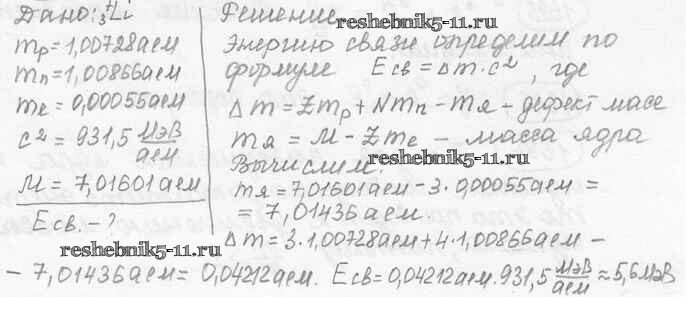 Дано: ⁷₃Li
mp = 1,00728 аем
mn = 1,00866 аем
me = 0,00055 аем
c² = 931,5 МэВ/аем
M = 7,01601 аем
Eсв. - ?
Решение
reshebnik5-11.ru
Энергию связи определим по
формуле Eсв = Δm·c², где
Δm = Zmp + Nmn - mя - дефект масс
mя = M - Zme - масса ядра
Вычислим:
reshebnik5-11.ru
mя = 7,01601 аем - 3·0,00055 аем =
= 7,01436 аем.
reshebnik5-11.ru
Δm = 3·1,00728 аем + 4·1,00866 аем -
- 7,01436 аем = 0,04212 аем. Eсв = 0,04212 аем·931,5 МэВ/аем ≈ 5,6 МэВ